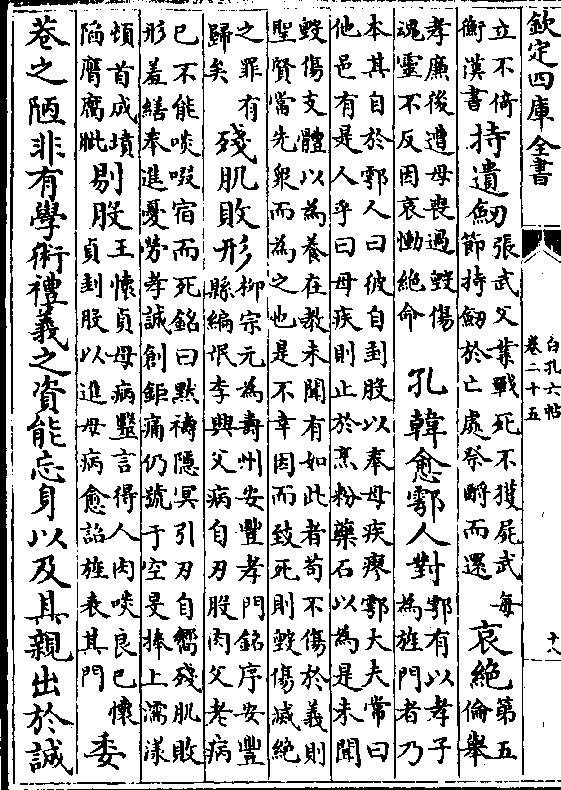 欽定四庫全書
白孔六帖
卷二十五
十八
立不倚
衡漢書
持遺劒
張武父業戰死不獲屍武每
節持劒於亡處祭酹而還
哀絶
第五
倫舉
孝廉後遭母喪過毀傷
魂靈不反因哀慟絶命
孔韓愈鄠人對
鄠有以孝子
為旌門者乃
本其自於鄠人曰彼自刲股以奉母疾瘳鄠大夫常曰
他邑有是人乎曰母疾則止於烹粉藥石以為是未聞
毀傷支體以為養在教未聞有如此者苟不傷於義則
聖賢當先衆而為之也是不幸因而致死則毀傷滅絶
之罪有
歸矣
殘肌敗形
柳宗元為壽州安豐孝門銘序安豐
縣編氓李興父病自刃股肉父老病
已不能啖啜宿而死銘曰黙禱隱冥引刃自嚮殘肌敗
形羞繕奉進憂勞孝誠創鉅痛仍號于空旻捧上濡漾
頓首成墳
陷膺腐眦
剔股
王懷貞母病醫言得人肉啖良已懷
貞刲股以進母病愈詔旌表其門
委
巷之陋非有學術禮義之資能忘身以及其親出於誠